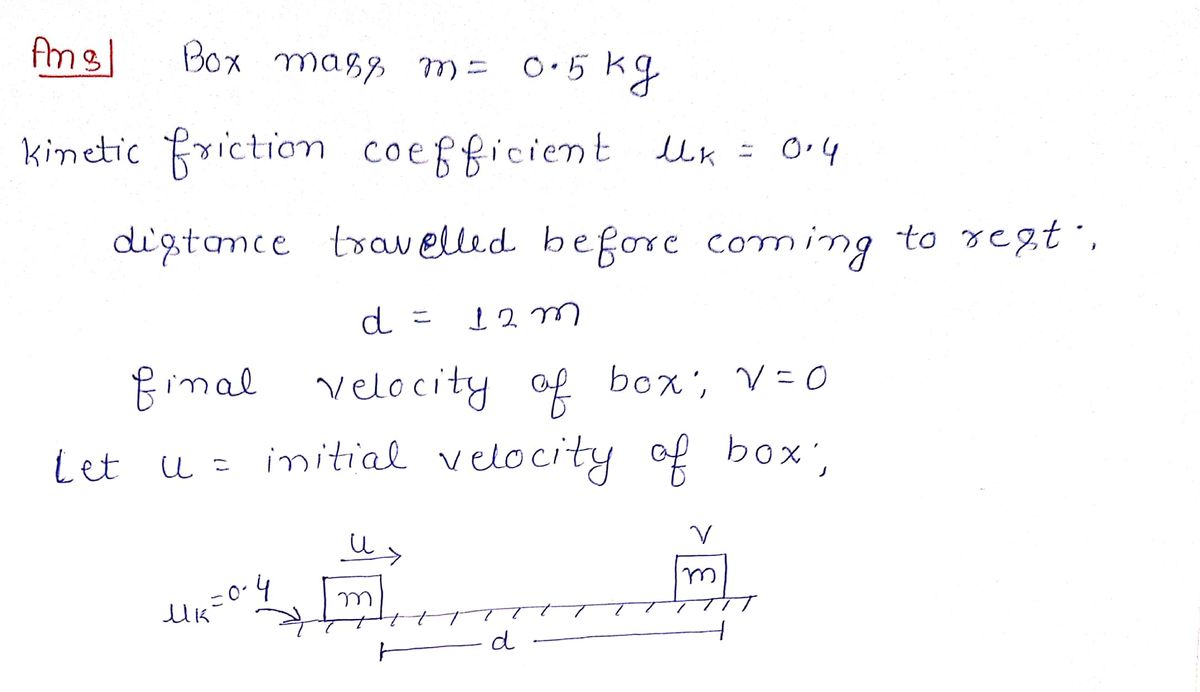 Ans] Box mass m = 0.5 kg
kinetic friction coefficient μk = 0.4
distance travelled before coming to rest ;,
d = 12 m
final velocity of box ;, v = 0
Let u = initial velocity of box ;,
u v
μk = 0.4 m m
d